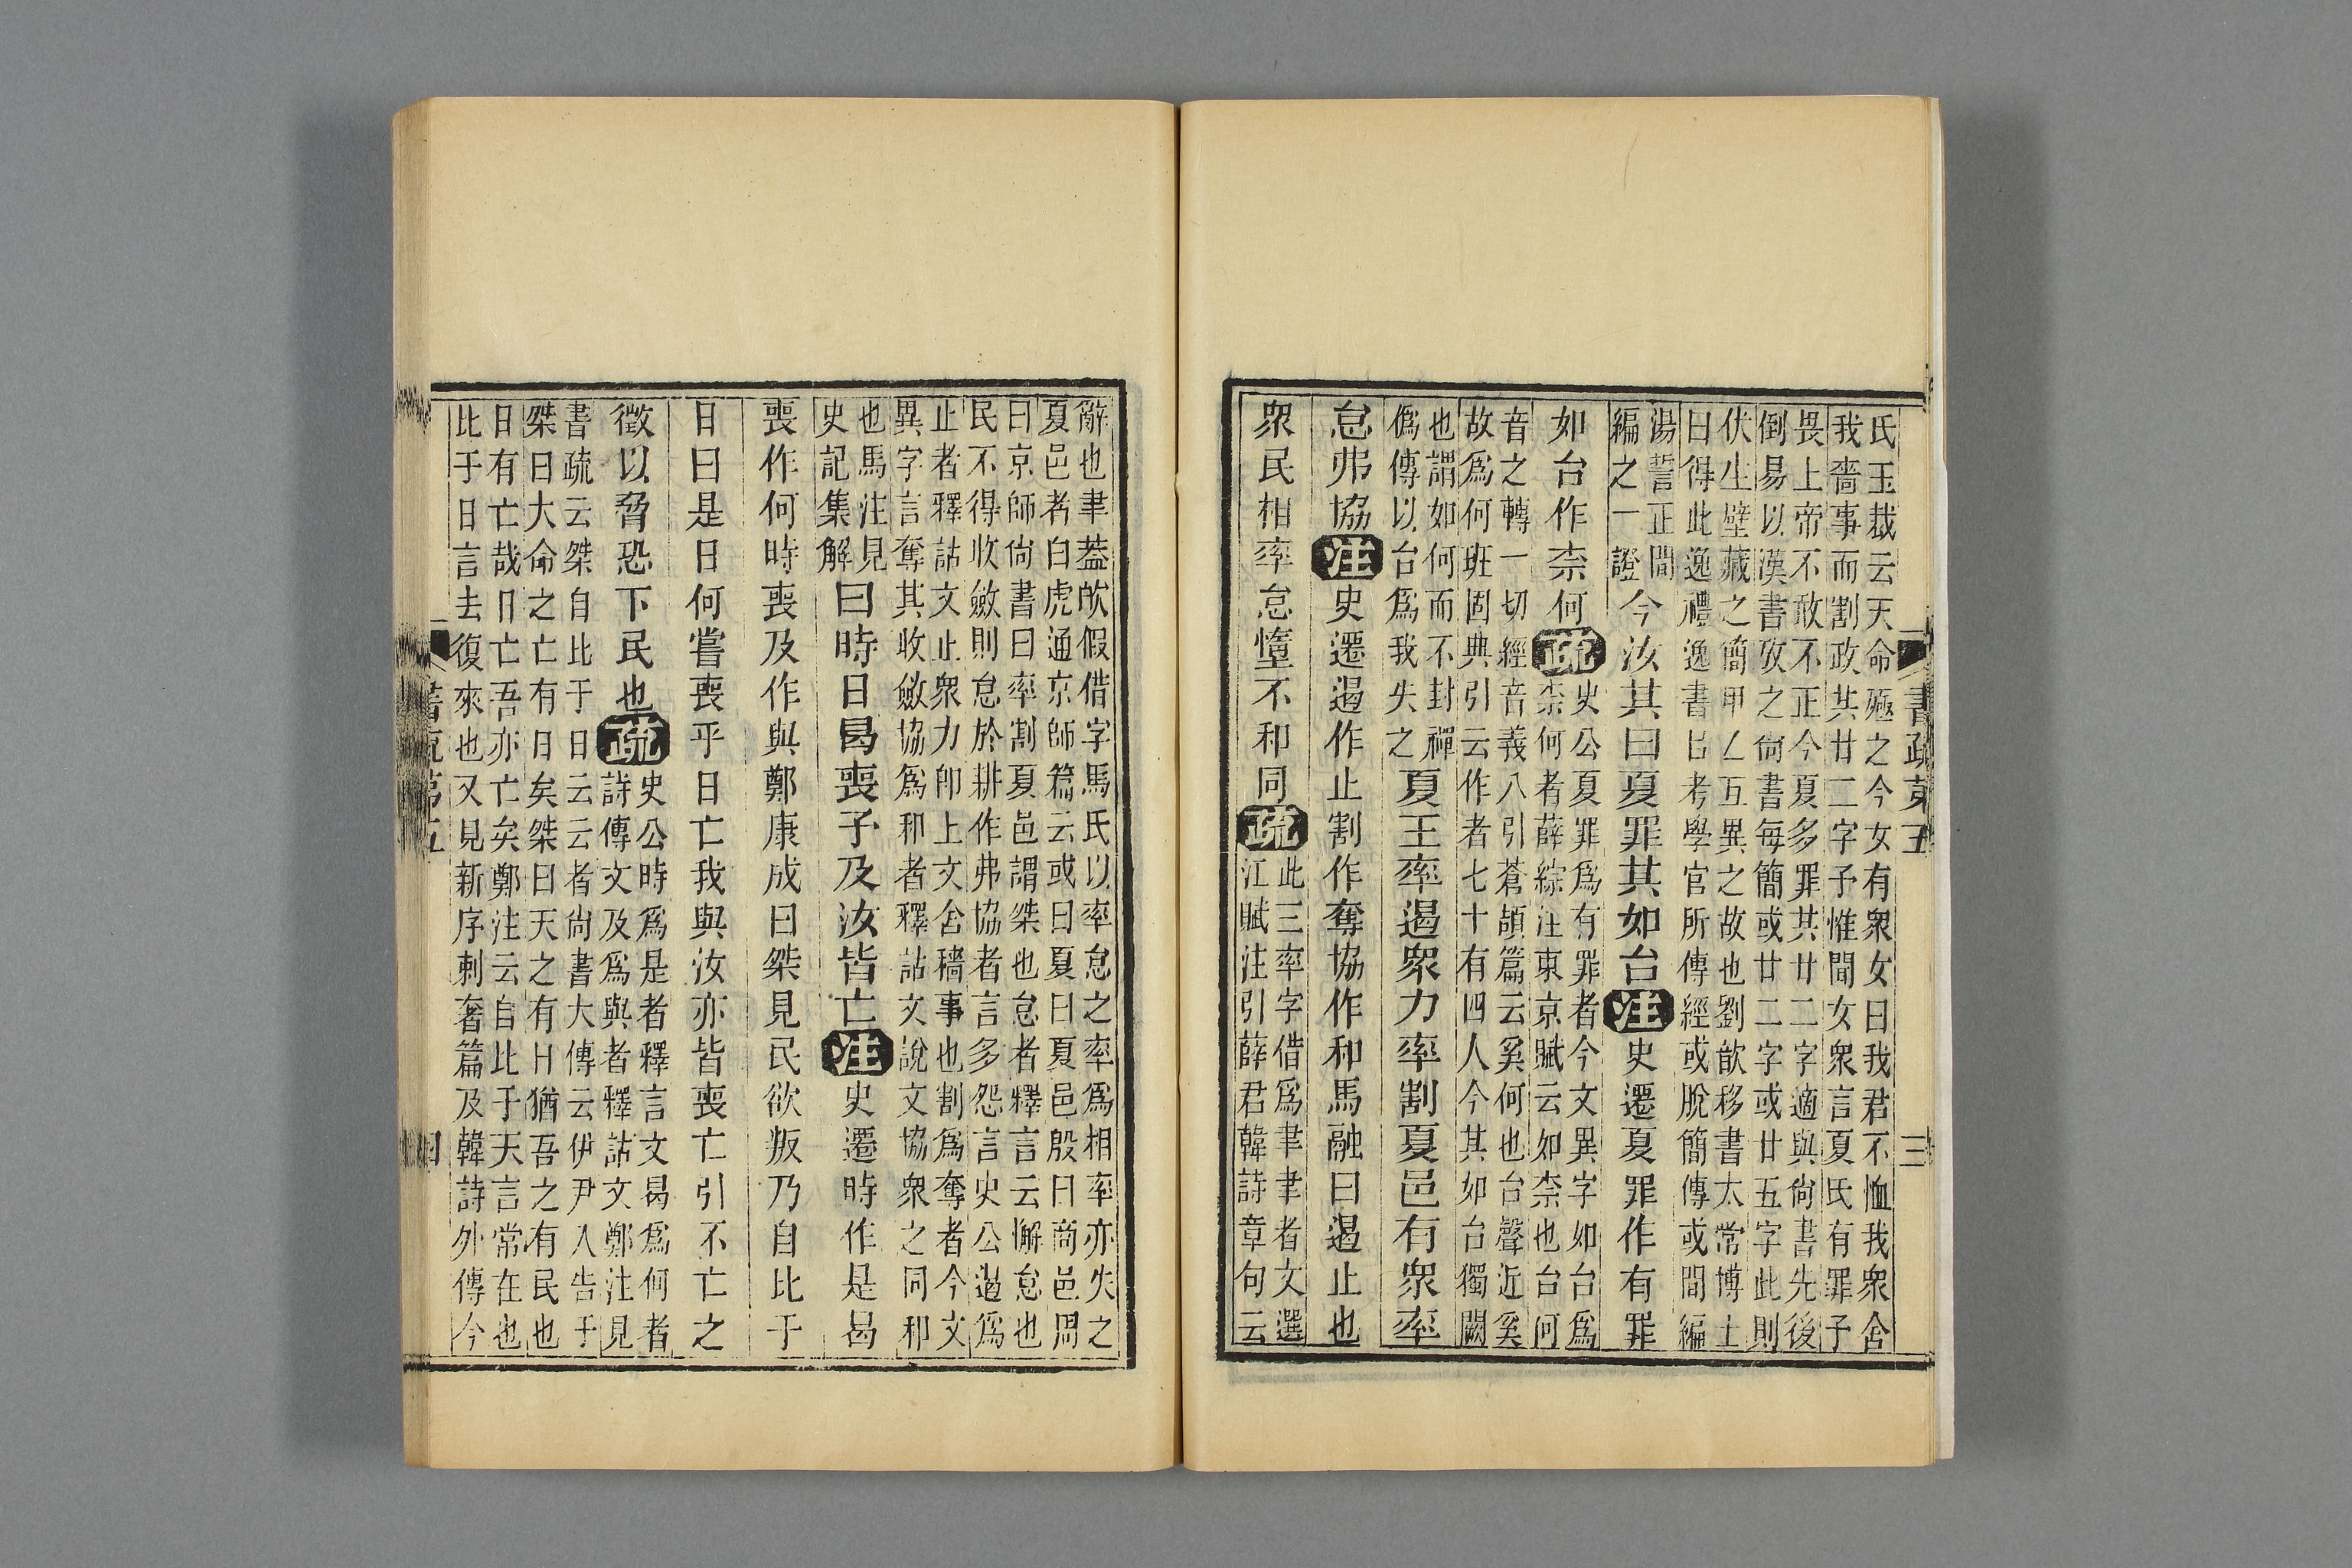 書疏第五
三
氏玉裁云天命殛之今女有眾女曰我君不恤我眾舍
我嗇事而割政共廿二字予惟聞女眾言夏氏有罪予
畏上帝不敢不正今夏多罪其廿二字適與尙書先後
倒易以漢書攷之尙書每簡或廿二字或廿五字此則
伏生壁藏之簡甲乙互異之故也劉歆移書太常博士
曰得此逸禮逸書㠯考學官所傳經或脫簡傳或間編
湯誓正閒
編之一證
今汝其曰夏罪其如台注史遷夏罪作有罪
如台作柰何疏
史公夏罪爲有罪者今文異字如台爲
柰何者薛綜注東京賦云如柰也台何
音之轉一切經音義八引蒼頡篇云奚何也台聲近奚
故爲何班固典引云作者七十有四人今其如台獨闕
也謂如何而不封禪
僞傳以台爲我失之
夏王率遏眾力率割夏邑有眾率
怠弗協注史遷遏作止割作奪協作和馬融曰遏止也
眾民相率怠惰不和同疏
此三率字借爲聿聿者文選
江賦注引薛君韓詩章句云
辭也聿蓋欥假借字馬氏以率怠之率爲相率亦失之
夏邑者白虎通京師篇云或曰夏曰夏邑殷曰商邑周
曰京師尙書曰率割夏邑謂桀也怠者釋言云懈怠也
民不得收斂則怠於耕作弗協者言多怨言史公遏爲
止者釋詁文止眾力卽上文舍穡事也割爲奪者今文
異字言奪其收斂協爲和者釋詁文說文協眾之同和
也馬注見
史記集解
曰時日曷喪予及汝皆亡注史遷時作是曷
喪作何時喪及作與鄭康成曰桀見民欲叛乃自比于
日曰是日何嘗喪乎日亡我與汝亦皆喪亡引不亡之
徵以脅恐下民也疏
史公時爲是者釋言文曷爲何者
詩傳文及爲與者釋詁文鄭注見
書疏云桀自比于日云云者尙書大傳云伊尹入告于
桀曰大命之亡有日矣桀曰天之有日猶吾之有民也
日有亡哉日亡吾亦亡矣鄭注云自比于天言常在也
比于日言去復來也又見新序刺奢篇及韓詩外傳今
書疏第五
四